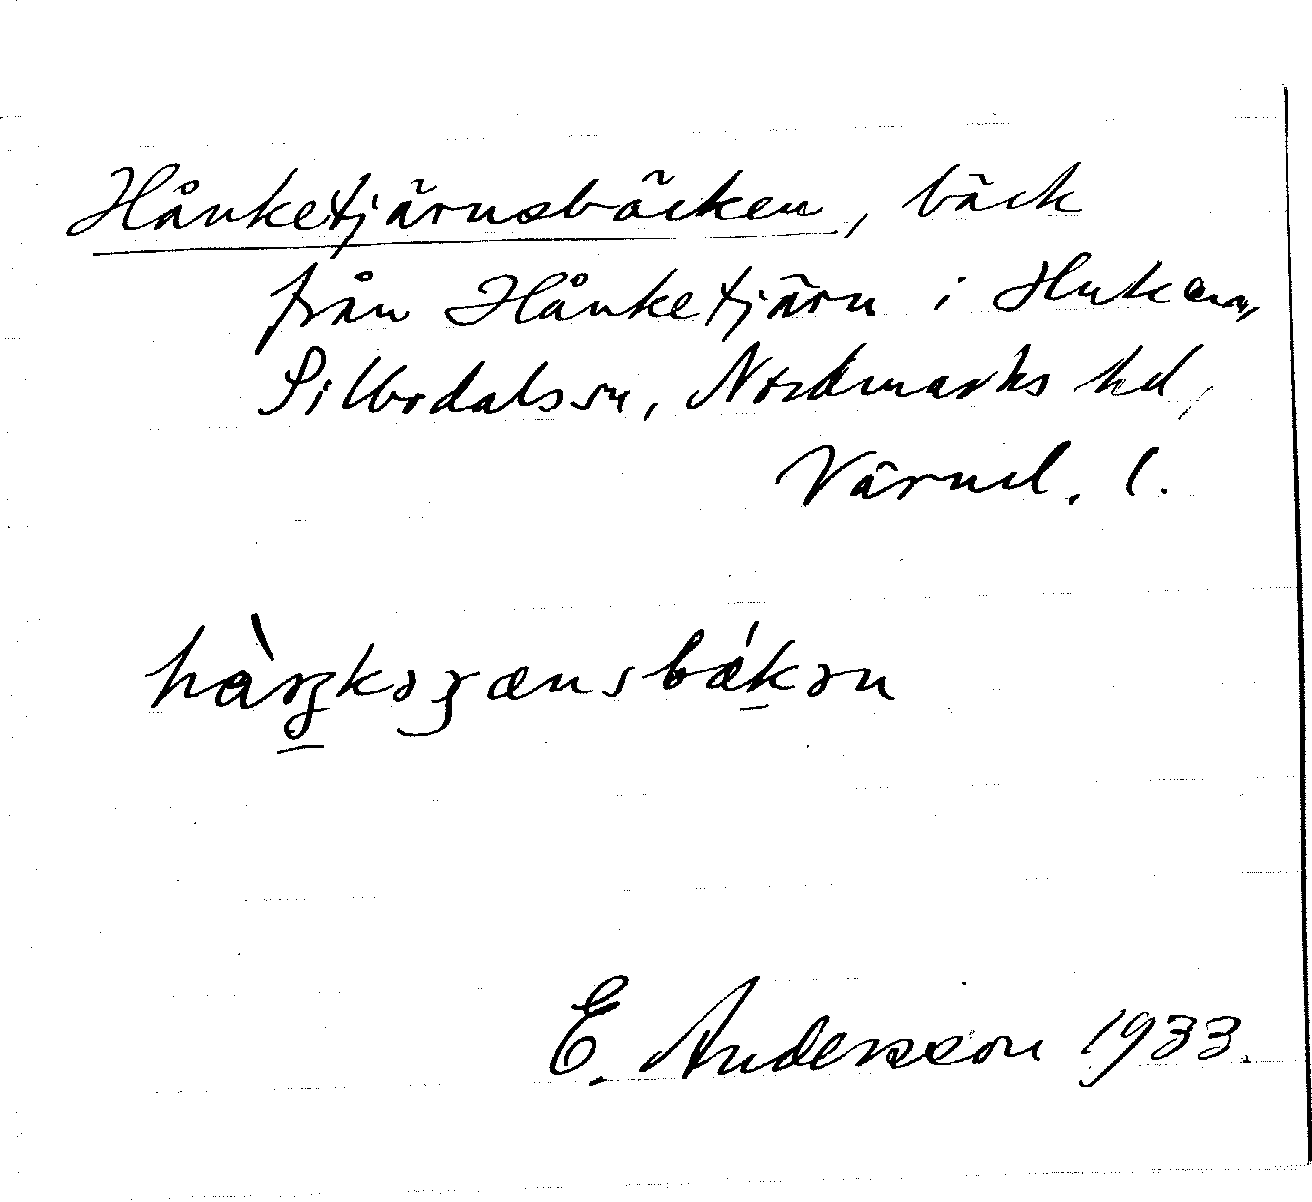 Hånketjärnsbäcken, bäck
från Hånketjärn i
Silbodals sn, Nordmarks hd,
Värml. l.
E. Andersson 1933.